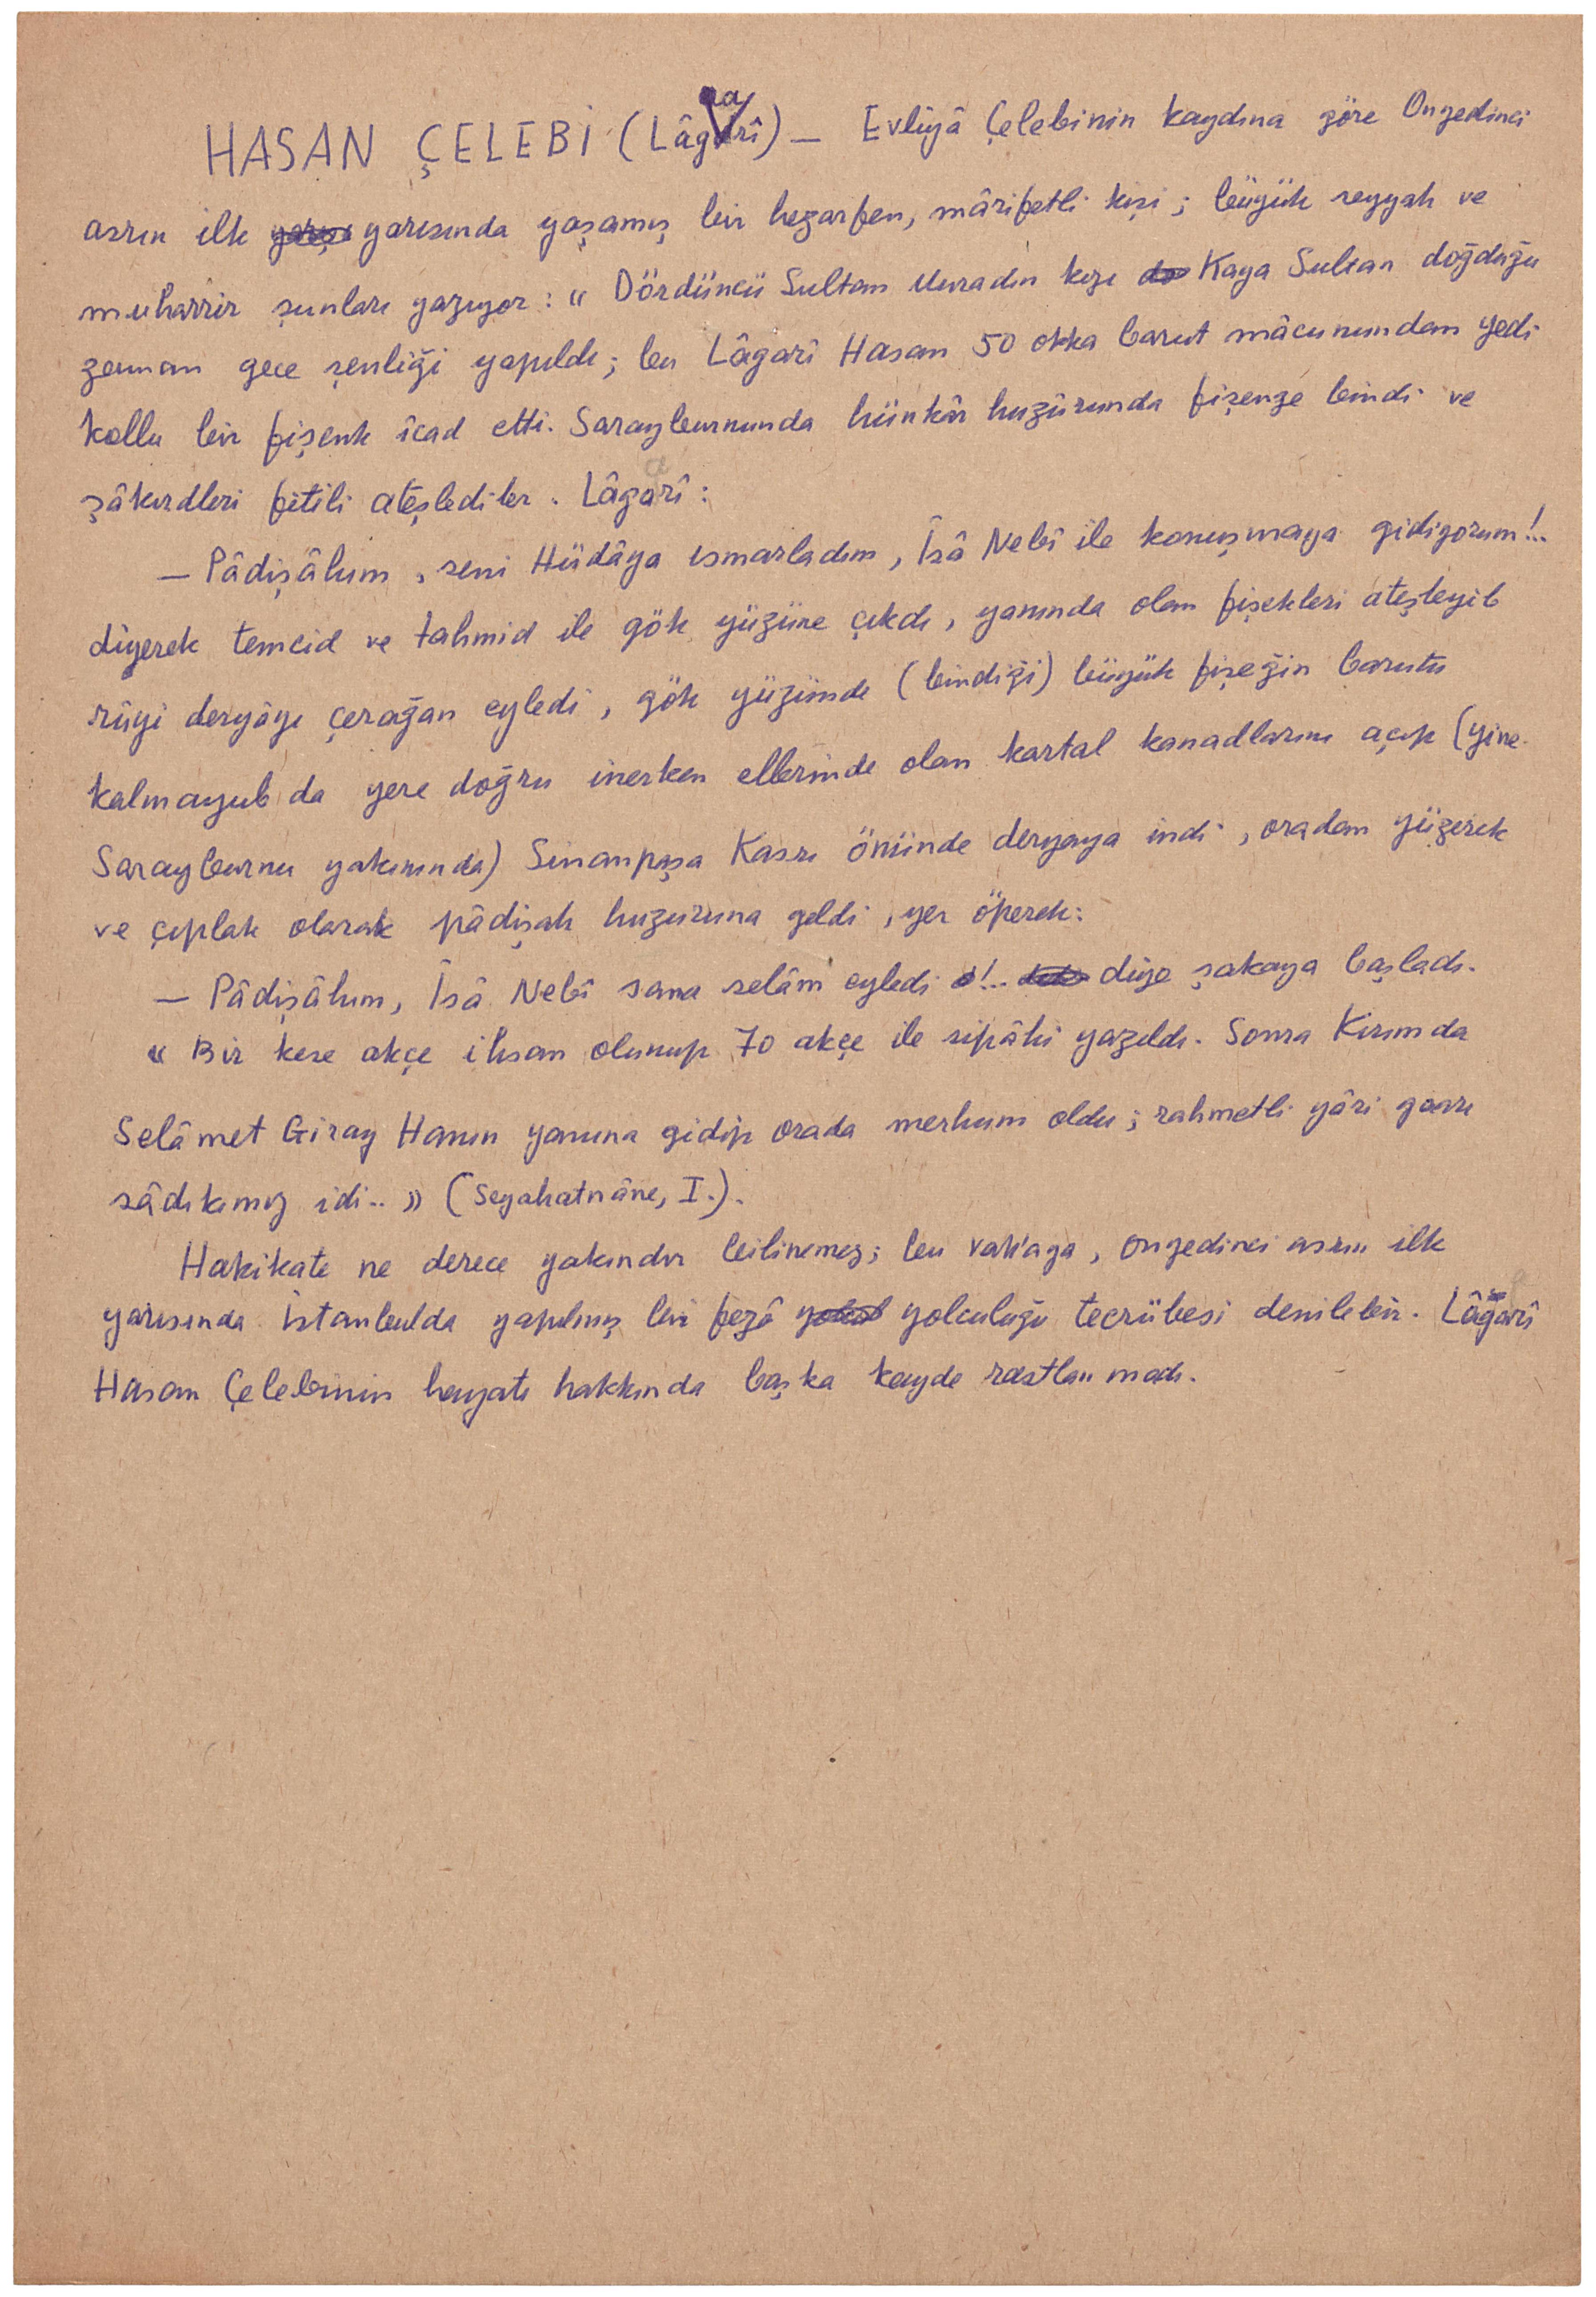 HASAN ÇELEBİ (Lâgarî) — Evliyâ Çelebinin kaydına göre Onyedinci
asrın ilk yarısında yaşamış bir hezarfen, mârifetli kişi; büyük seyyah ve
muharrir şunları yazıyor: « Dördüncü Sultan Muradın kızı Kaya Sultan doğduğu
zaman gece şenliği yapıldı; bu Lâgarî Hasan 50 okka barut mâcunundan yedi
kollu bir fişenk îcad etti. Sarayburnunda hünkâr huzûrunda fişenge bindi ve
şâkirdleri fitili ateşlediler. Lâgarî:
— Pâdişâhım, seni Hüdâya ısmarladım, Îsâ Nebî ile konuşmaya gidiyorum!..
diyerek temcid ve tahmid ile gök yüzüne çıkdı, yanında olan fişekleri ateşleyib
rûyi deryâyı çerağan eyledi, gök yüzünde (bindiği) büyük fişeğin barutu
kalmayub da yere doğru inerken ellerinde olan kartal kanadlarını açıp (yine
Sarayburnu yakınında) Sinanpaşa Kasrı önünde deryaya indi, oradan yüzerek
ve çıplak olarak pâdişah huzuruna geldi, yer öperek:
— Pâdişâhım, Îsâ Nebî sana selâm eyledi!.. diye şakaya başladı.
« Bir kese akçe ihsan olunup 70 akçe ile sipâhi yazıldı. Sonra Kırımda
Selâmet Giray Hanın yanına gidip orada merhum oldu; rahmetli yâri gaarı
sâdıkımız idi.. » (Seyahatnâne, I.).
Hakikate ne derece yakındır bilinemez; bu vak'aya, onyedinci asrın ilk
yarısında İstanbulda yapılmış bir fezâ yolculuğu tecrübesi denilebilir. Lâgarî
Hasan Çelebinin hayatı hakkında başka kayde rastlanmadı.